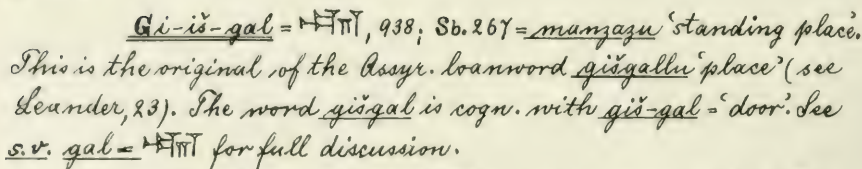 Gi-iš-gal = , 938; Sb. 267 = manzazu 'standing place'.
This is the original of the Assyr. loanword gišgallu 'place' (see
Leander, 23). The word gišgal is cogn. with giš-gal = 'door'. See
s.v. gal = for full discussion.